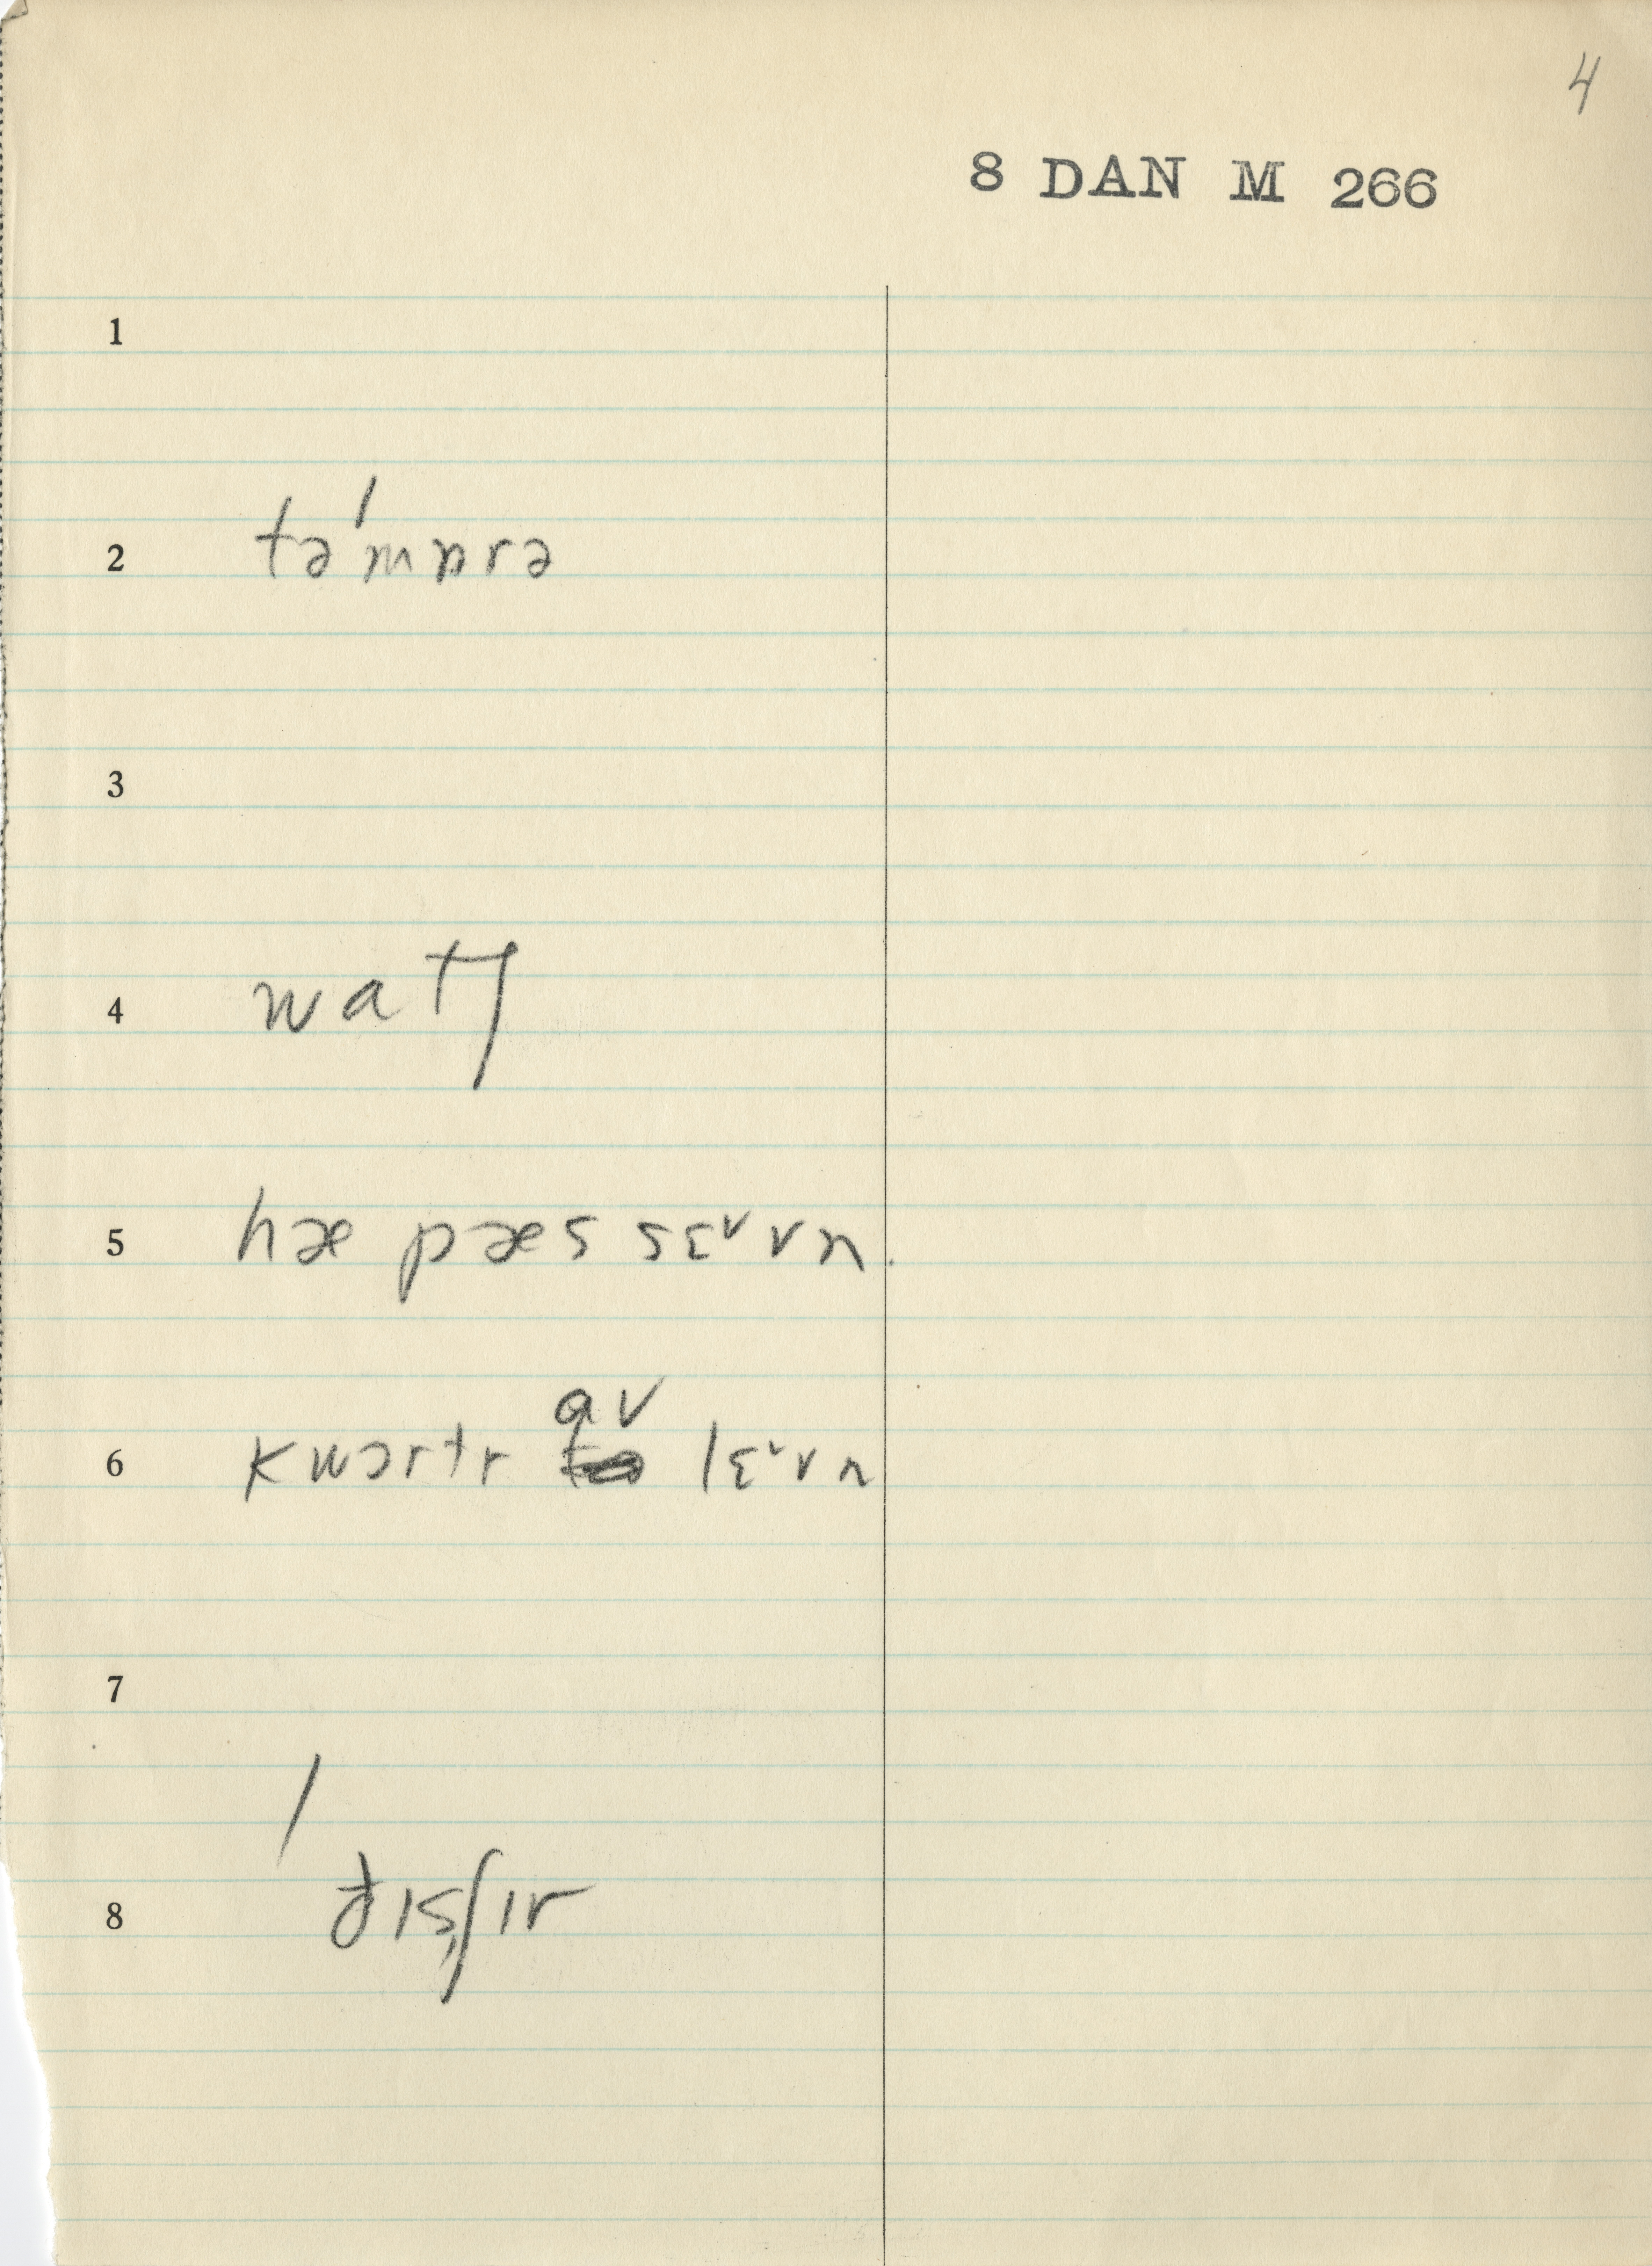 4
8 DAN M 266
1
2 təˈmɒrə
3
4 watʃ
5 hæ pæs sɛᵛvn
6 kwɔrtr av lɛᵛvn
7
8 / ðɪs̩ʃɪr